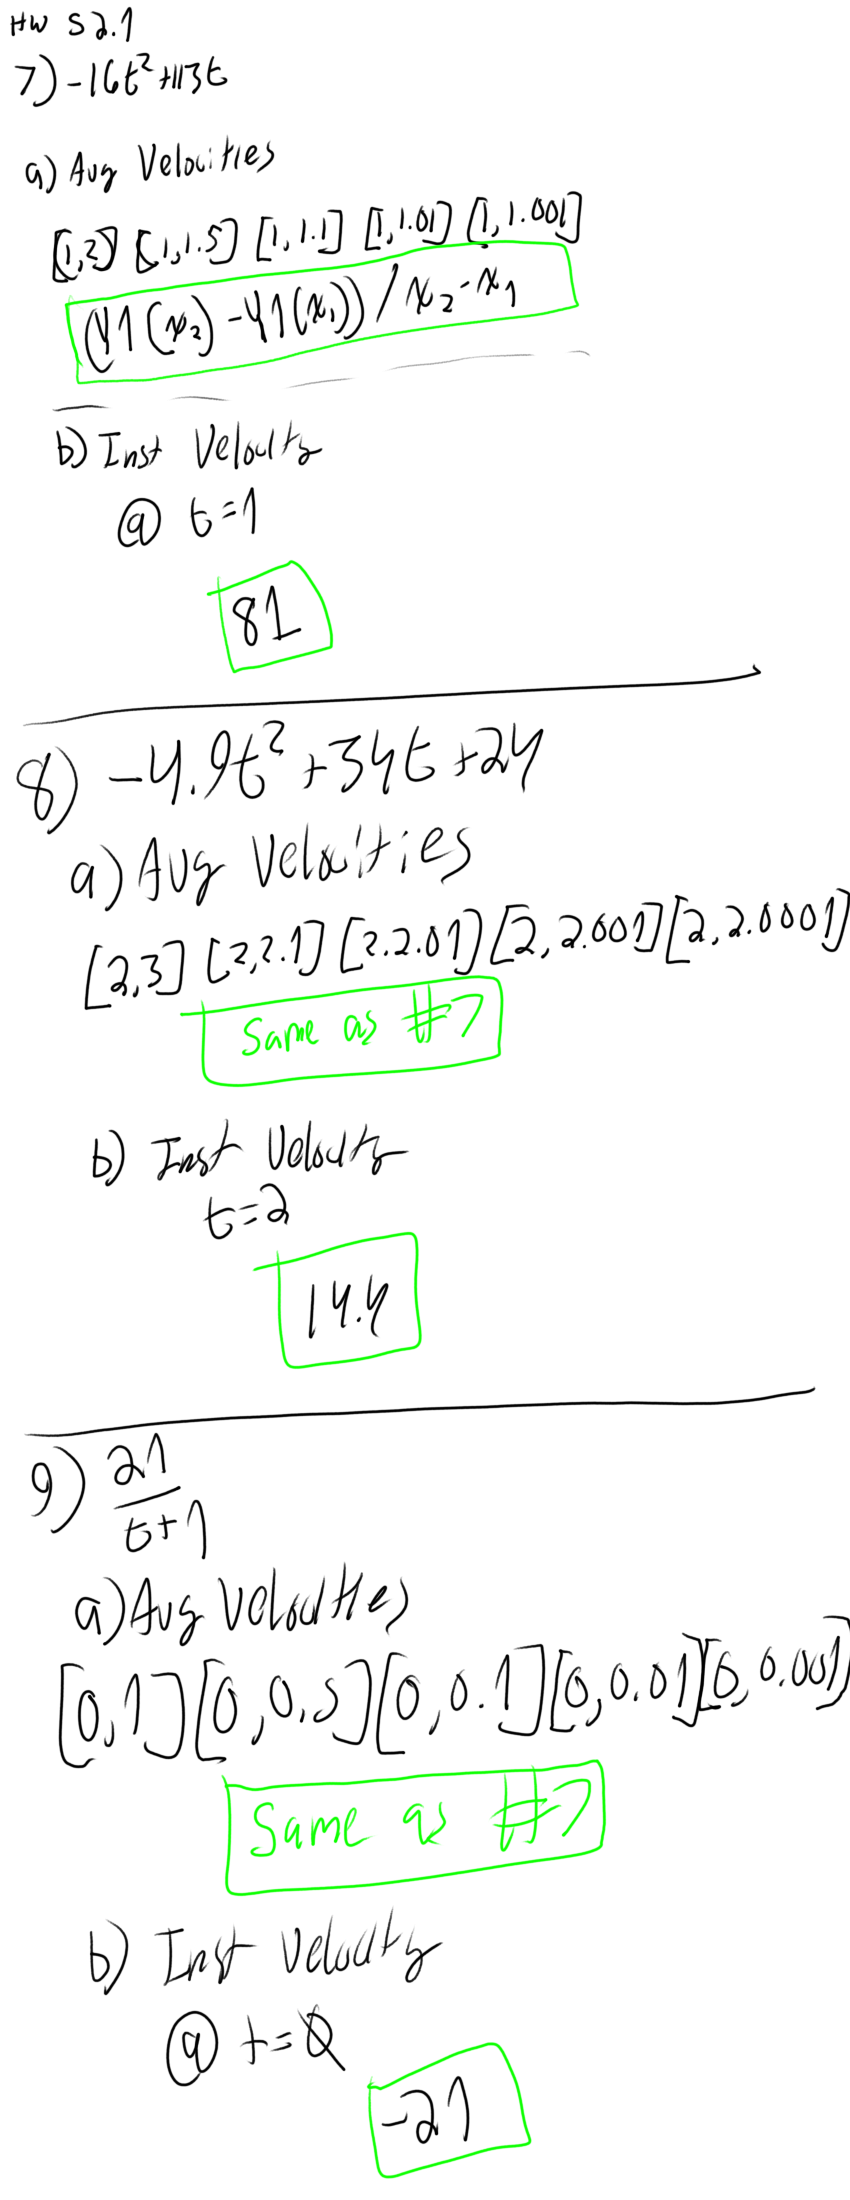 HW S 2.1
7) -16t² +113t
a) Avg Velocities
[1,2] [1,1.5] [1,1.1] [1,1.01] [1,1.001]
(Y1(x₂) - Y1(x₁)) / x₂ - x₁
b) Inst Velocity
@ t=1
81
8) -4.9t² +34t +24
a) Avg Velocities
[2,3] [2,2.1] [2.2.01] [2,2.001] [2,2.0001]
Same as #7
b) Inst Velocity
t=2
14.4
9) 21/t+1
a) Avg Velocities
[0,1] [0,0.5] [0,0.1] [0,0.01] [0,0.001]
Same as #7
b) Inst Velocity
@ t=0
-21